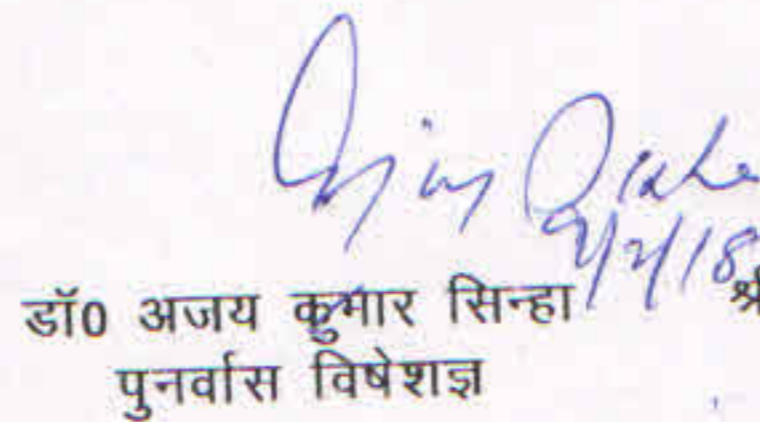 9/2/18
डॉ0 अजय कुमार सिन्हा श्र
पुनर्वास विषेशज्ञ